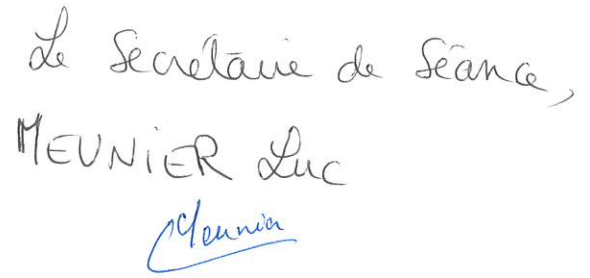 Le Secrétaire de Séance,
MEUNIER Luc
Meunier